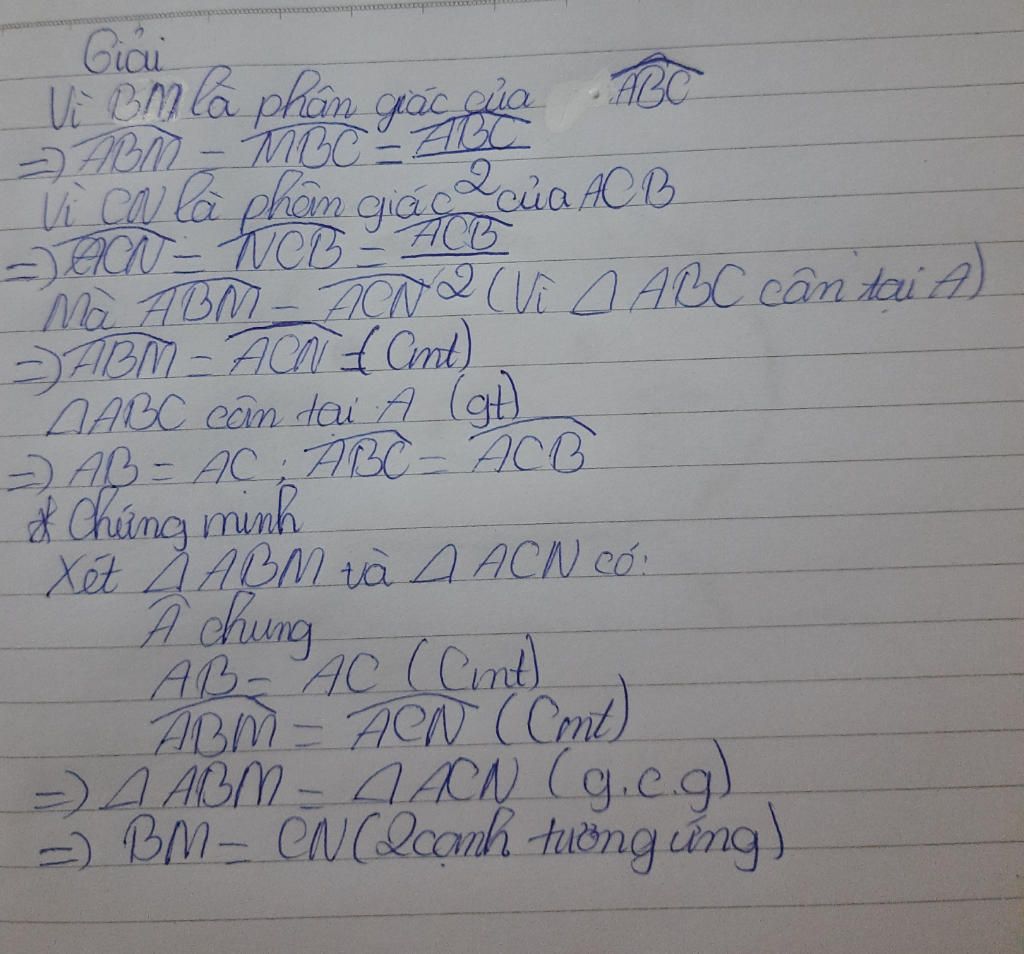 Giải
Vì BM là phân giác của \widehat{ABC}
=) \widehat{ABM} = \widehat{MBC} = \frac{\widehat{ABC}}{2}
Vì CN là phân giác của ACB
=) \widehat{ACN} = \widehat{NCB} = \frac{\widehat{ACB}}{2}
Mà \widehat{ABM} = \widehat{ACN} (Vì △ ABC cân tại A)
=) \widehat{ABM} = \widehat{ACN} (Cmt)
△ABC cân tai A (gt)
=) AB = AC ; \widehat{ABC} = \widehat{ACB}
* Chứng minh
Xét △ ABM và △ ACN có:
\widehat{A} chung
AB = AC (Cmt)
\widehat{ABM} = \widehat{ACN} (Cmt)
=) △ ABM = △ ACN (g.c.g)
=) BM = CN (2 cạnh tương ứng)